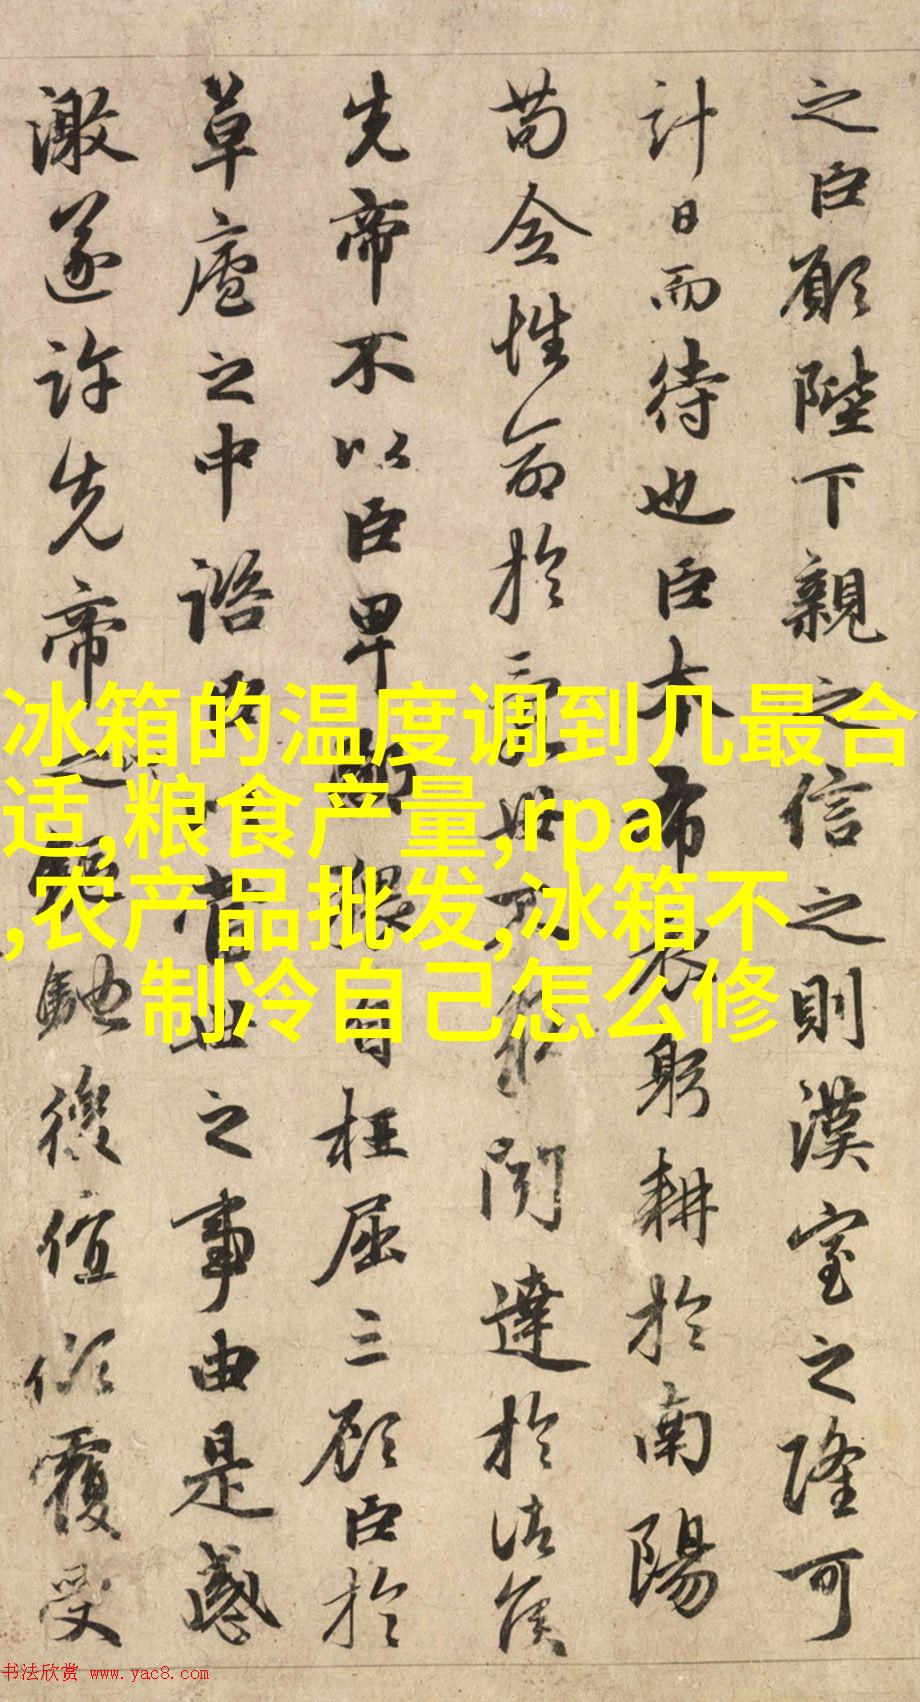 之臣願陛下親之信之則漢室之隆可
計日而待也臣本布衣躬耕於南陽
苟全性命於亂世不求聞達於諸侯
先帝不以臣卑鄙猥自枉屈三顧臣於
草廬之中諮臣以當世之事由是感
激遂許先帝以驅馳後值傾覆受
冰箱的温度调到几最合
适,粮食产量,rpa
,农产品批发,冰箱不
制冷自己怎么修
书法欣赏 www.yac8.com